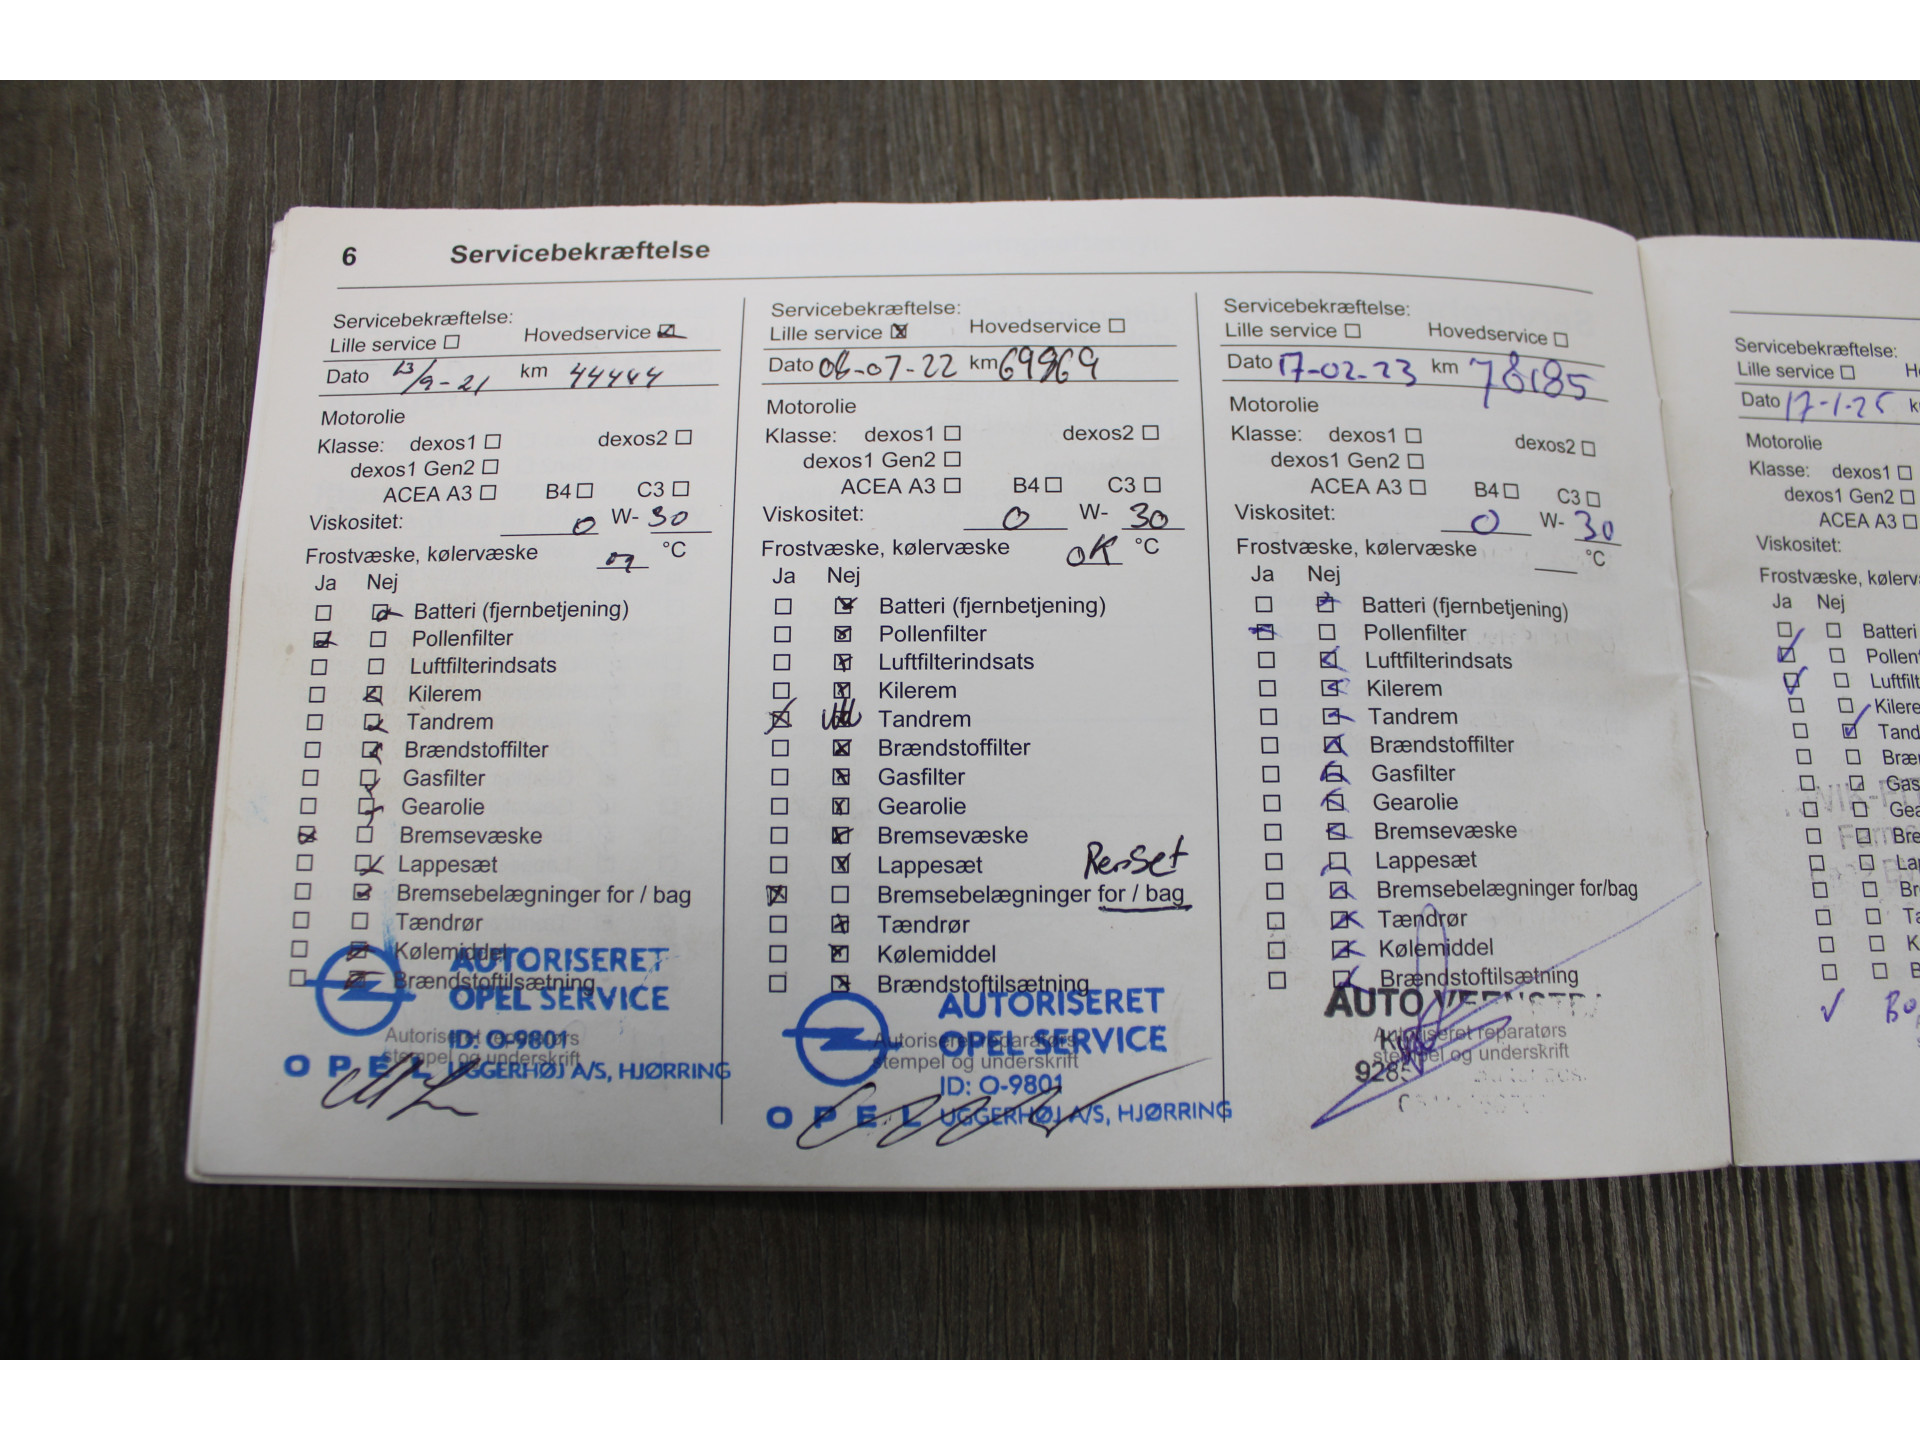 6 Servicebekræftelse
Servicebekræftelse:
Lille service Hovedservice
Dato 13/9-21 km 44444
Motorolie
Klasse: dexos1 dexos2
dexos1 Gen2
ACEA A3 B4 C3
Viskositet: 0 W- 30
Frostvæske, kølervæske °C
Ja Nej
Batteri (fjernbetjening)
Pollenfilter
Luftfilterindsats
Kilerem
Tandrem
Brændstoffilter
Gasfilter
Gearolie
Bremsevæske
Lappesæt
Bremsebelægninger for / bag
Tændrør
Kølemiddel
Brændstoftilsætning
AUTORISERET
OPEL SERVICE
Autoriseret reparatørs
stempel og underskrift
ID: O-9801
OPEL UGGERHØJ A/S, HJØRRING
Servicebekræftelse:
Lille service Hovedservice
Dato 06-07-22 km 69969
Motorolie
Klasse: dexos1 dexos2
dexos1 Gen2
ACEA A3 B4 C3
Viskositet: 0 W- 30
Frostvæske, kølervæske OK °C
Ja Nej
Batteri (fjernbetjening)
Pollenfilter
Luftfilterindsats
Kilerem
Tandrem
Brændstoffilter
Gasfilter
Gearolie
Bremsevæske
Lappesæt Renset
Bremsebelægninger for / bag
Tændrør
Kølemiddel
Brændstoftilsætning
AUTORISERET
OPEL SERVICE
Autoriseret reparatørs
stempel og underskrift
ID: O-9801
OPEL UGGERHØJ A/S, HJØRRING
Servicebekræftelse:
Lille service Hovedservice
Dato 17-02-23 km 78185
Motorolie
Klasse: dexos1 dexos2
dexos1 Gen2
ACEA A3 B4 C3
Viskositet: 0 W- 30
Frostvæske, kølervæske °C
Ja Nej
Batteri (fjernbetjening)
Pollenfilter
Luftfilterindsats
Kilerem
Tandrem
Brændstoffilter
Gasfilter
Gearolie
Bremsevæske
Lappesæt
Bremsebelægninger for/bag
Tændrør
Kølemiddel
Brændstoftilsætning
AUTO
Autoriseret reparatørs
stempel og underskrift
928
Servicebekræftelse:
Lille service H
Dato 17-1-25 k
Motorolie
Klasse: dexos1
dexos1 Gen2
ACEA A3
Viskositet:
Frostvæske, kølerv
Ja Nej
Batteri
Pollen
Luftfilt
Kilere
Tand
Bræn
Gas
Gea
Bre
Lap
Br
Tæ
K
B